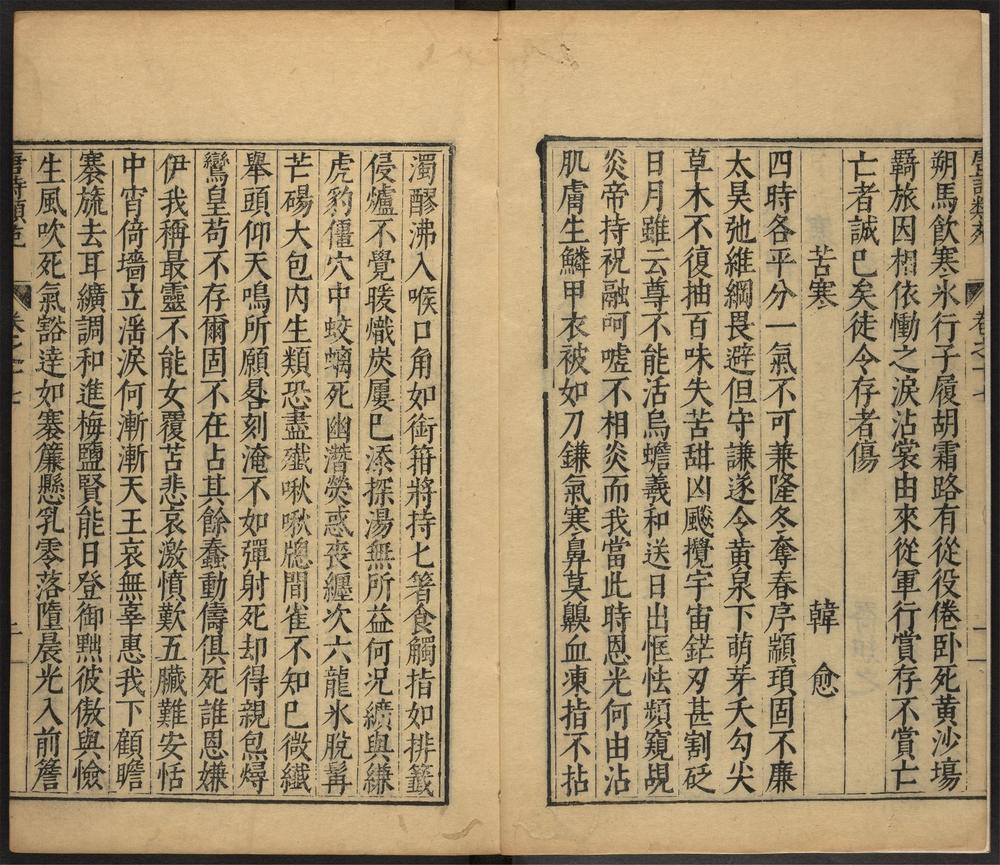 唐詩類苑 卷之十七 二
朔馬飲寒氷行子履胡霜路有從役倦卧死黃沙塲
羇旅因相依慟之淚沾裳由來從軍行賞存不賞亡
亡者誠已矣徒令存者傷
苦寒 韓愈
四時各平分一氣不可兼隆冬奪春序顓頊固不廉
太昊弛維綱畏避但守謙遂令黃泉下萌芽夭勾尖
草木不復抽百味失苦甜凶飈攪宇宙鋩刃甚割砭
日月雖云尊不能活烏蟾羲和送日出恇怯頻窺覘
炎帝持祝融呵噓不相炎而我當此時恩光何由沾
肌膚生鱗甲衣被如刀鎌氣寒鼻莫齅血凍指不拈
濁醪沸入喉口角如銜箝將持匕箸食觸指如排籤
侵爐不覺暖熾炭屢已添探湯無所益何况纊與縑
虎豹僵穴中蛟螭死幽潛熒惑喪纏次六龍氷脫髯
芒碭大包內生類恐盡殲啾啾牎間雀不知已微纖
舉頭仰天鳴所願晷刻淹不如彈射死却得親炰燖
鸞皇苟不存爾固不在占其餘蠢動儔俱死誰恩嫌
伊我稱最靈不能女覆苫悲哀激憤歎五臟難安恬
中宵倚墻立淫淚何漸漸天王哀無辜惠我下顧瞻
褰旒去耳纊調和進梅鹽賢能日登御黜彼傲與憸
生風吹死氣豁達如褰簾懸乳零落墮晨光入前簷
唐詩類苑 卷之十七 二